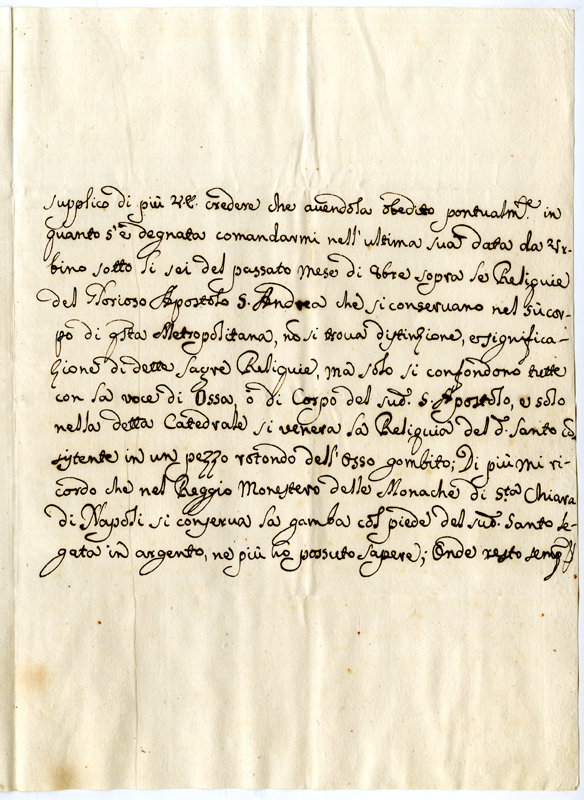 supplico di più V.E. credere che avendola obedito pontualm.te in
quanto s'è degnata comandarmi nell'ultima sua data da Ur-
bino sotto li sei del passato mese di 8bre sopra le Reliquie
del Glorioso Apostolo S. Andrea che si conservano nel Succor-
po di q̃sta Metropolitana, nõ si trova distinzione, e significa-
zione di dette sagre Reliquie, ma solo si confondono tutte
con la voce di Ossa, ò di Corpo del sud.º S. Apostolo, e solo
nella detta Catedrale si venera la Reliquia del d.º Santo cõ
sistente in un pezzo rotondo dell'osso gombito; Di più mi ri-
cordo che nel Reggio Monestero delle Monache di Sta Chiara
di Napoli si conserva la gamba col piede del sud.º Santo le-
gata in argento, ne più hò possuto sapere; Onde resto semp̃